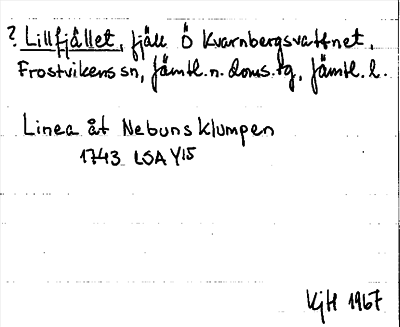 ? Lillfjället, fjäll Ö Kvarnbergsvattnet,
Frostvikens sn, Jämtl. n. doms.tg, Jämtl. l.
Linea åt Nebunsklumpen
1743 LSA Y15
KjH 1967